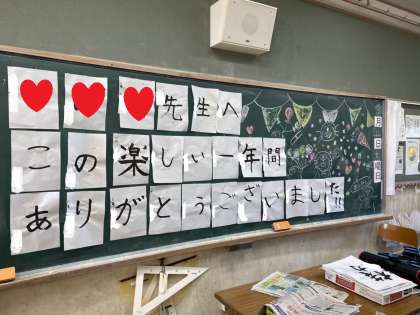 先生へ
この楽しい一年間
ありがとうございました!!
月
日